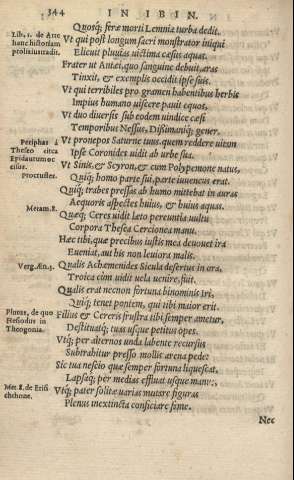 344 IN IBIN.
Quosq́; feræ morti Lemnia turba dedit.
Vt qui post longum sacri monstrator iniqui
Elicuit pluuias uictima cæsus aquas.
Frater ut Antæi, quo sanguine debuit, aras
Tinxit, & exemplis occidit ipse suis.
Vt qui terribiles pro gramen habentibus herbis
Impius humano uiscere pauit equos.
Vt duo diuersis sub eodem uindice cæsi
Temporibus Nessus, Dexameniq́; gener.
Vt pronepos Saturne tuus, quem reddere uitam
Ipse Coronides uidit ab urbe sua.
Vt Sinis, & Scyron, & cum Polypemone natus,
Quiq́; homo parte sui, parte iuuencus erat.
Quiq́; trabes pressas ab humo mittebat in auras
Aequoris aspectes huius, & huius aquas.
Quæq́; Ceres uidit læto pereuntia uultu
Corpora Thesea Cercionea manu.
Hæc tibi, quæ precibus iustis mea deuouet ira
Eueniat, aut his non leuiora malis.
Qualis Achæmenides Sicula desertus in ora,
Troica cùm uidit uela uenire, fuit.
Qualis erat necnon fortuna binominis Iri,
Quiq́; tenet pontem, qui tibi maior erit.
Filius & Cereris frustra tibi semper ametur,
Destituatq́; tuas usque petitus opes.
Vtq́; per alternos unda labente recursus
Subtrahitur presso mollis arena pede:
Sic tua nescio quæ semper fortuna liquescat.
Lapsaq́; per medias effluat usque manus,
Vtq́; pater solitæ uarias mutare figuras
Plenus inextincta conficiare fame.
Nec
Lib. 1. de Arte
hanc historiam
prolixius tradit.
Periphas à
Theseo circa
Epidaurum oc
cisus.
Procustes.
Metam. 8.
Verg. Æn. 3.
Plutus, de quo
Hesiodus in
Theogonia.
Met. 8. de Erisi
chthone.